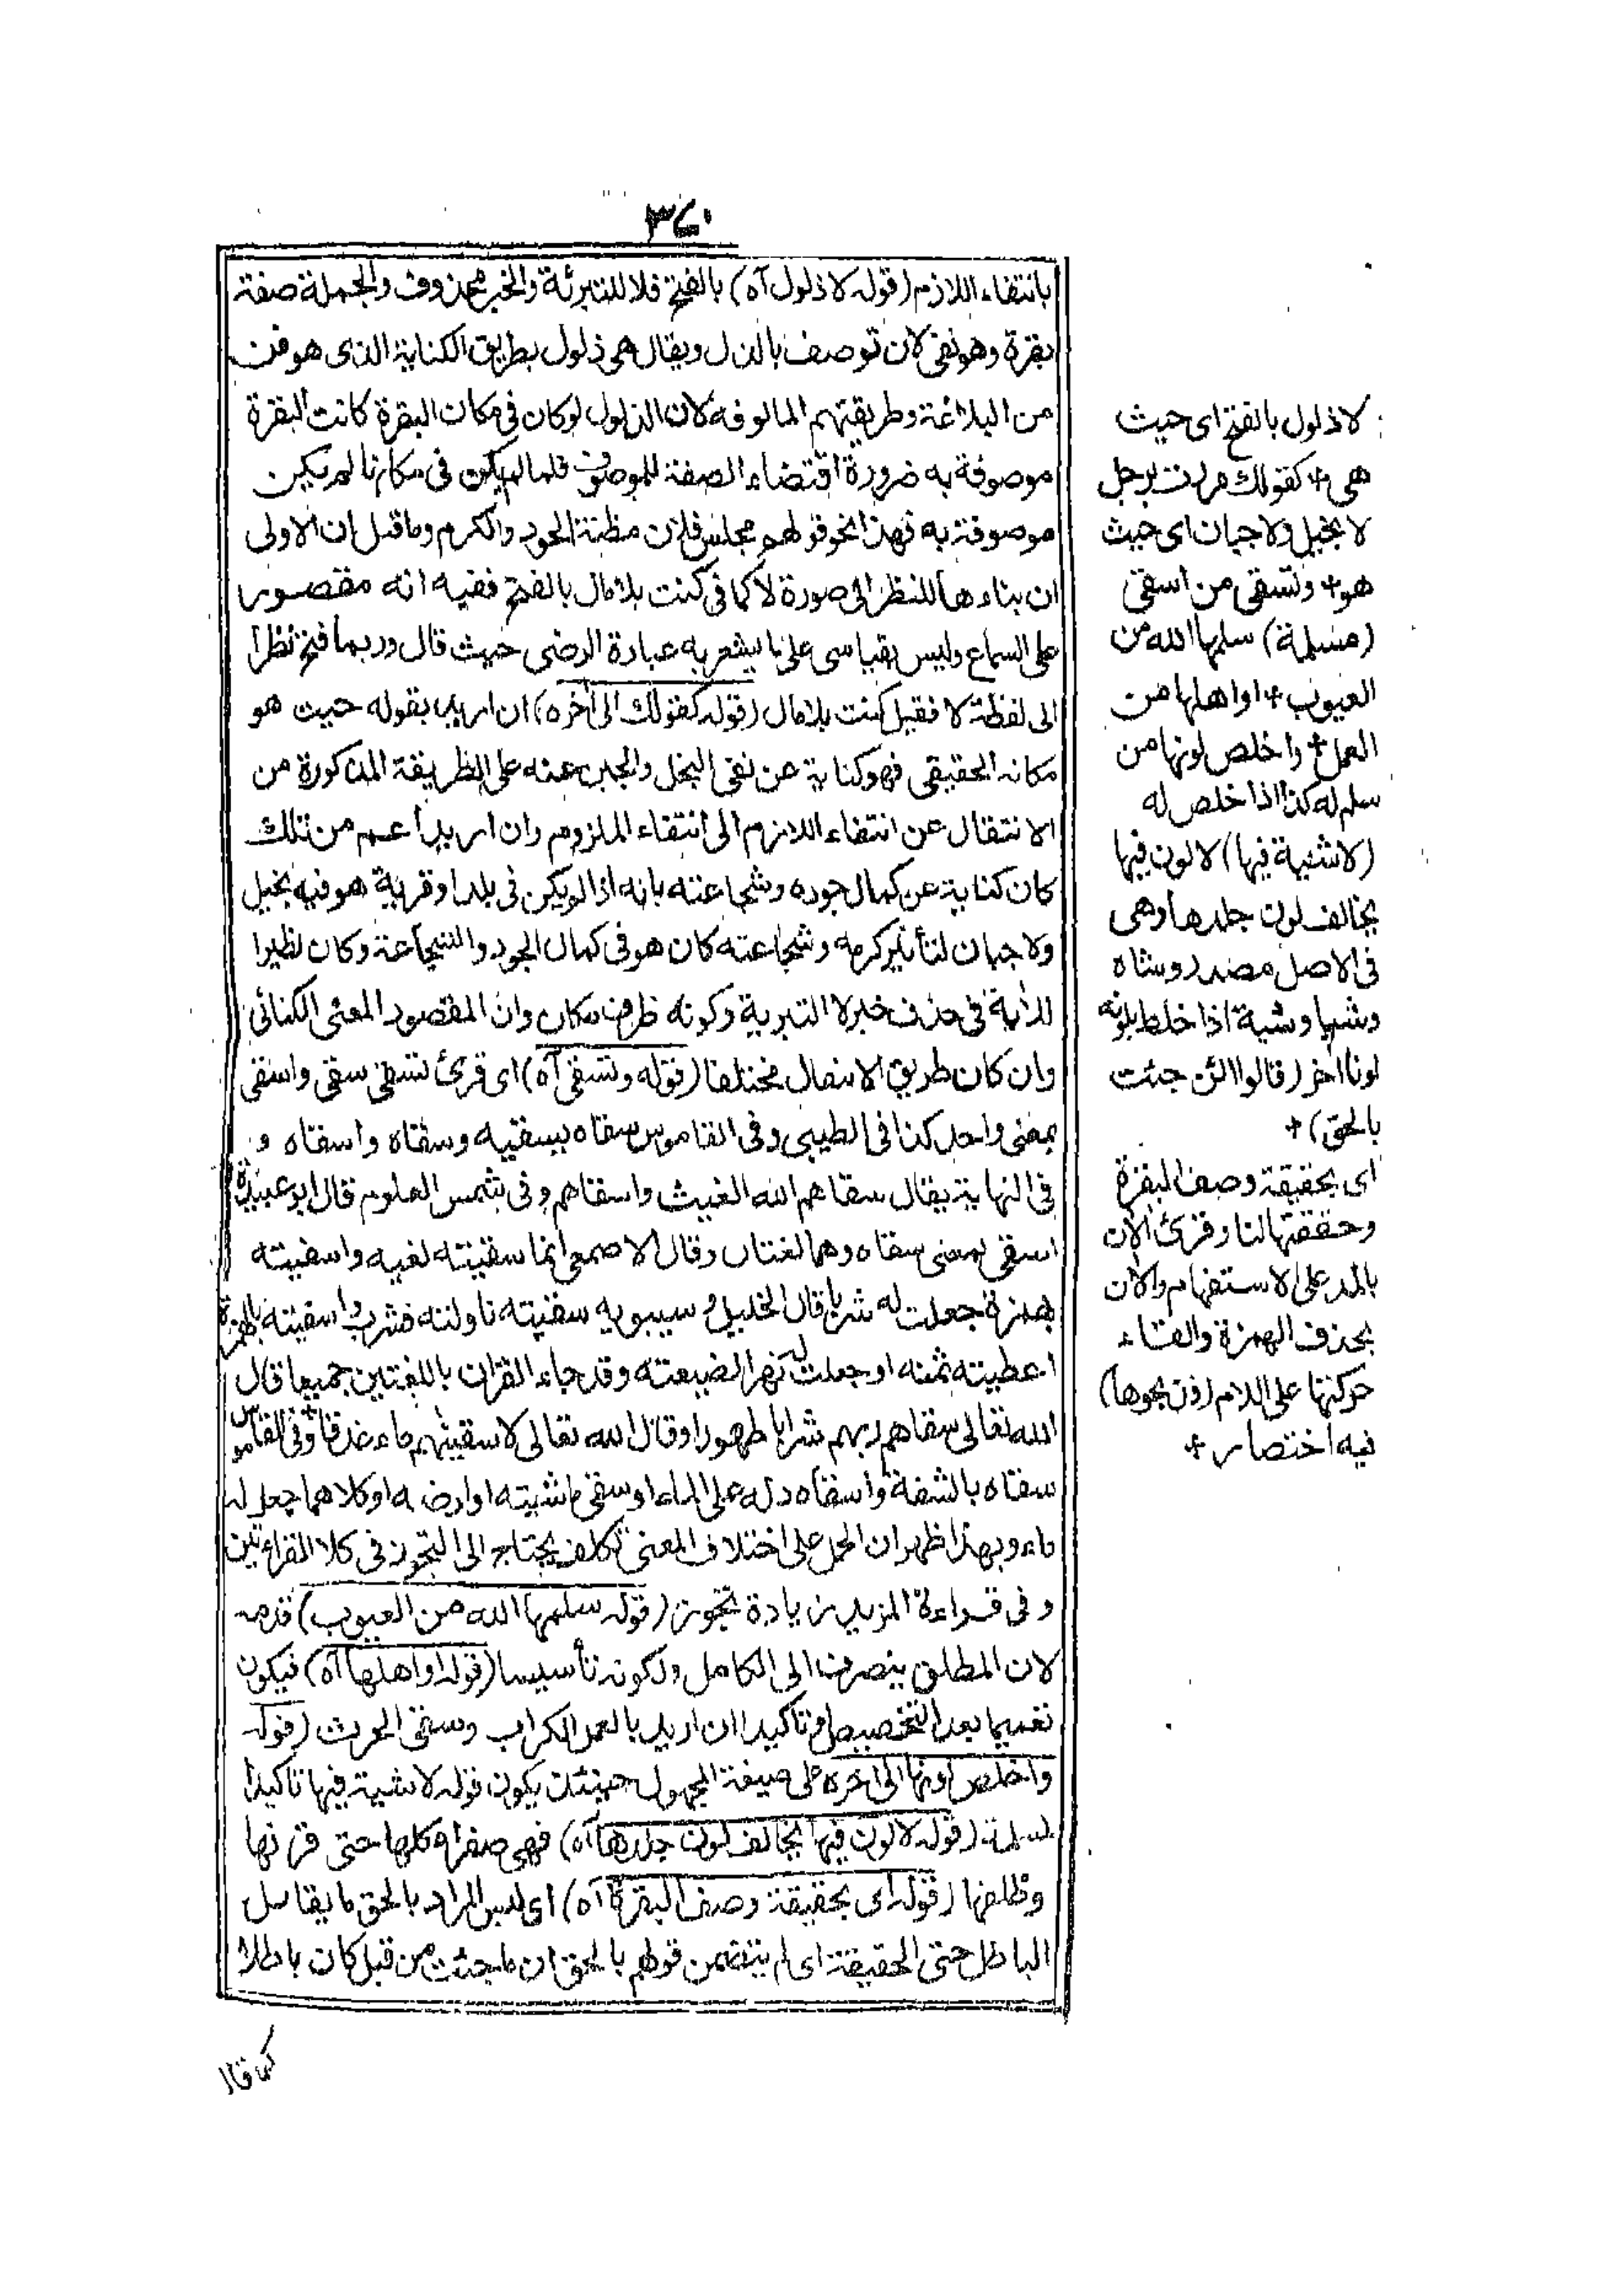 ٣٧٠
بانتفاء اللازم (قوله لا ذلول آه) بالفتح فلا للتبرئة والخبر محذوف والجملة صفة
بقرة وهو نفى لان توصف بالذل ويقال هى ذلول بطريق الكناية الذى هو فن
من البلاغة وطريقتهم المالوفة لان الذلول لو كان فى مكان البقرة كانت البقرة
موصوفة به ضرورة اقتضاء الصفة للموصوف فلما لم يكن فى مكانها لم يكن
موصوفة به فهذا نحو قولهم مجلس فلان مظنة الجود والكرم وما قيل ان الاولى
ان بناءها للنظر الى صورة لا كما فى كنت بلا مال بالفتح ففيه انه مقصور
على السماع وليس بقياسى على ما يشعر به عبارة الرضى حيث قال وربما فتح نظرا
الى لفظة لا فقيل كنت بلا مال (قوله كقولك الى آخره) ان اريد بقوله حيث هو
مكانه الحقيقى فهو كناية عن نفى البخل والجبن عنه على الطريقة المذكورة من
الانتقال عن انتفاء اللازم الى انتفاء الملزوم وان اريد اعم من تلك
كان كناية عن كمال جوده وشجاعته بانه اذا لم يكن فى بلد او قرية هو فيه بخيل
ولا جبان لتأثير كرمه وشجاعته كان هو فى كمال الجود والشجاعة وكان نظيرا
للآية فى حذف خبر لا التبرية وكونه ظرف مكان وان المقصود المعنى الكنائى
وان كان طريق الانتقال مختلفا (قوله وتسقى آه) اى قرئ تسقى سقى واسقى
بمعنى واحد كذا فى الطيبى وفى القاموس سقاه يسقيه وسقاه واسقاه و
فى النهاية يقال سقاهم الله الغيث واسقاهم وفى شمس العلوم قال ابو عبيدة
اسقى بمعنى سقاه وهما لغتان وقال الاصمعى انما سقيته لفيه واسقيته
بهمزة جعلت له شربا قال الخليل و سيبويه سقيته ناولته فشرب واسقيته بالهمزة
اعطيته ثمنه او جعلت له نهرا لضيعته وقد جاء القران باللغتين جميعا قال
الله تعالى سقاهم ربهم شرابا طهورا وقال الله تعالى لاسقيناهم ماء غدقا وفى القاموس
سقاه بالشفة واسقاه دله على الماء او سقى ماشيته او ارضه او كلاهما جعل له
ماء وبهذا ظهر ان الحمل على اختلاف المعنى تكلف يحتاج الى التجوز فى كلا القراءتين
و فى قراءة المزيد زيادة تجوز (قوله سلمها الله من العيوب) قدمه
لان المطلق ينصرف الى الكامل ولكونه تأسيسا (قوله او اهلها آه) فيكون
تعميما بعد التخصيص او تاكيدا ان اريد بالعمل الكراب وسقى الحرث (قوله
واخلص لونها الى آخره) على صيغة المجهول حينئذ يكون قوله لا شية فيها تاكيدا
لمسلمة (قوله لا لون فيها يخالف لون جلدها آه) فهى صفراء كلها حتى قرنها
وظلفها (قوله اى بحقيقة وصف البقرة آه) اى ليس المراد بالحق ما يقابل
الباطل حتى الحقيقة اى لم يتضمن قولهم بالحق ان ما جئت من قبل كان باطلا
كما قال
لا ذلول بالفتح اى حيث
هى + كقولك مررت برجل
لا بخيل ولا جبان اى حيث
هو + وتسقى من اسقى
(مسلمة) سلمها الله من
العيوب + او اهلها من
العمل + واخلص لونها من
سلم له كذا اذا خلص له
(لا شية فيها) لا لون فيها
يخالف لون جلدها وهى
فى الاصل مصدر وشاه
وشيا وشية اذا خلط بلونه
لونا اخر (قالوا الئن جئت
بالحق) +
اى بحقيقة وصف البقرة
وحققتها لنا وقرئ الآن
بالمد على الاستفهام والان
بحذف الهمزة والقاء
حركتها على اللام (فذبحوها)
فيه اختصار +